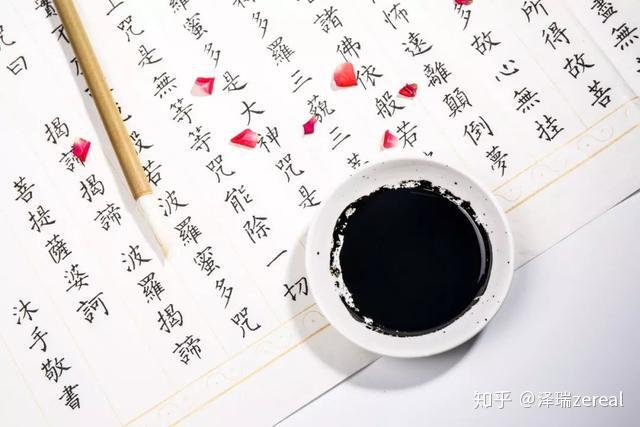 盡無
所得故菩
多故心無挂
怖遠離顛倒夢
諸佛依般若
多羅三藐三菩
蜜多是大神咒是
上咒是無等等咒能除一切
若波羅蜜多咒
咒曰 揭諦揭諦 波羅揭諦
菩提薩婆訶
沐手敬書
知乎 @泽瑞zereal